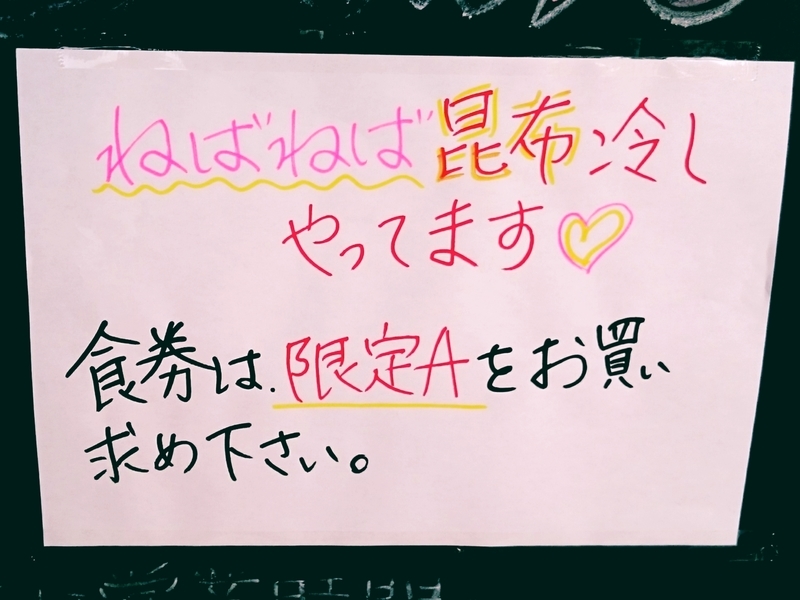 ねばねば昆布冷し
やってます♡
食券は、限定Aをお買い
求め下さい。